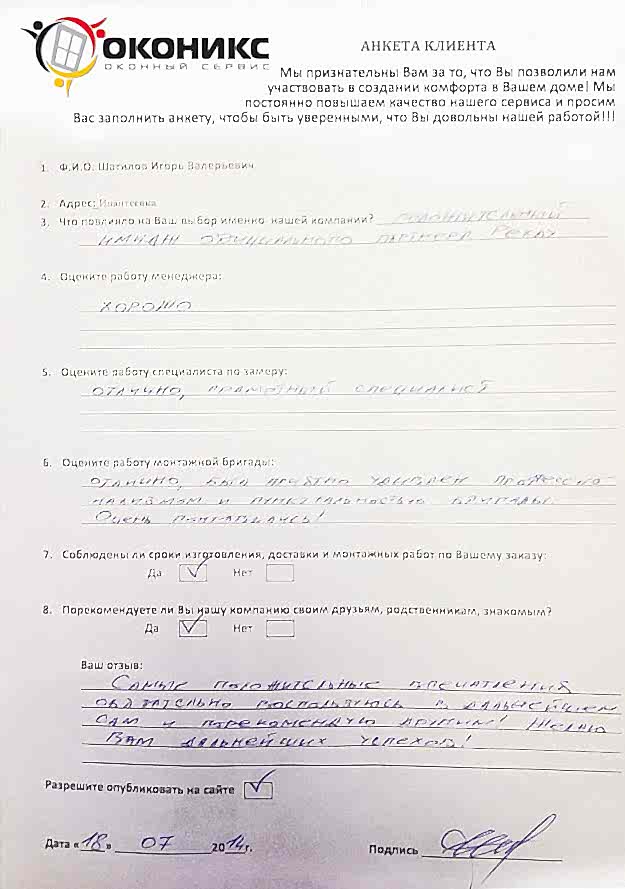 ОКОНИКС
ОКОННЫЙ СЕРВИС
АНКЕТА КЛИЕНТА
Мы признательны Вам за то, что Вы позволили нам
участвовать в создании комфорта в Вашем доме! Мы
постоянно повышаем качество нашего сервиса и просим
Вас заполнить анкету, чтобы быть уверенными, что Вы довольны нашей работой!!!
1. Ф.И.О. Шатилов Игорь Валерьевич
2. Адрес: Ивантеевка
3. Что повлияло на Ваш выбор именно нашей компании? положительный
имидж официального партнера Рехау
4. Оцените работу менеджера:
хорошо
5. Оцените работу специалиста по замеру:
отлично, грамотный специалист
6. Оцените работу монтажной бригады:
отлично, был приятно удивлен профессио-
нализмом и пунктуальностью бригады.
Очень понравились!
7. Соблюдены ли сроки изготовления, доставки и монтажных работ по Вашему заказу:
Да Нет
8. Порекомендуете ли Вы нашу компанию своим друзьям, родственникам, знакомым?
Да Нет
Ваш отзыв:
Самые положительные впечатления
обязательно воспользуюсь в дальнейшем
сам и порекомендую другим! Желаю
Вам дальнейших успехов!
Разрешите опубликовать на сайте
Дата «18» 07 2014г.
Подпись